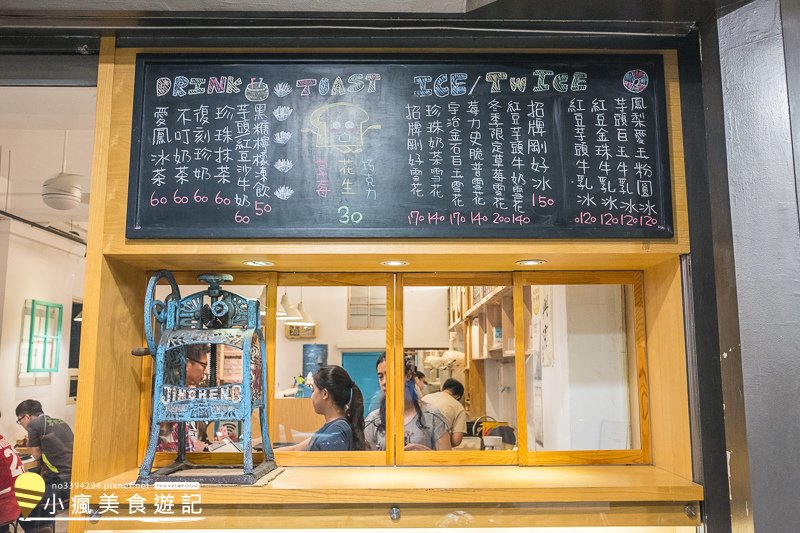 DRINK TOAST ICE/TWICE
愛鳳冰茶 60
不叮奶茶 60
復刻珍奶 60
珍珠抹茶 60
芋頭紅豆沙牛奶 60
黑糖檸檬凍飲 50
草莓
花生
巧克力
30
招牌剛好雪花 170
珍珠奶茶雪花 140
宇治金石巨玉雪花 170
莓力史脆普雪花 140
冬季限定草莓雪花 200
紅豆芋頭牛奶雪花 140
招牌剛好冰 150
紅豆芋頭牛乳冰
紅豆金珠牛乳冰 120
芋頭巨玉牛乳冰 120
鳳梨愛玉粉圓冰 120
JINCHENG
no3394294.pixnet.net
TRAVEL♥FOOD
小瘋美食遊記